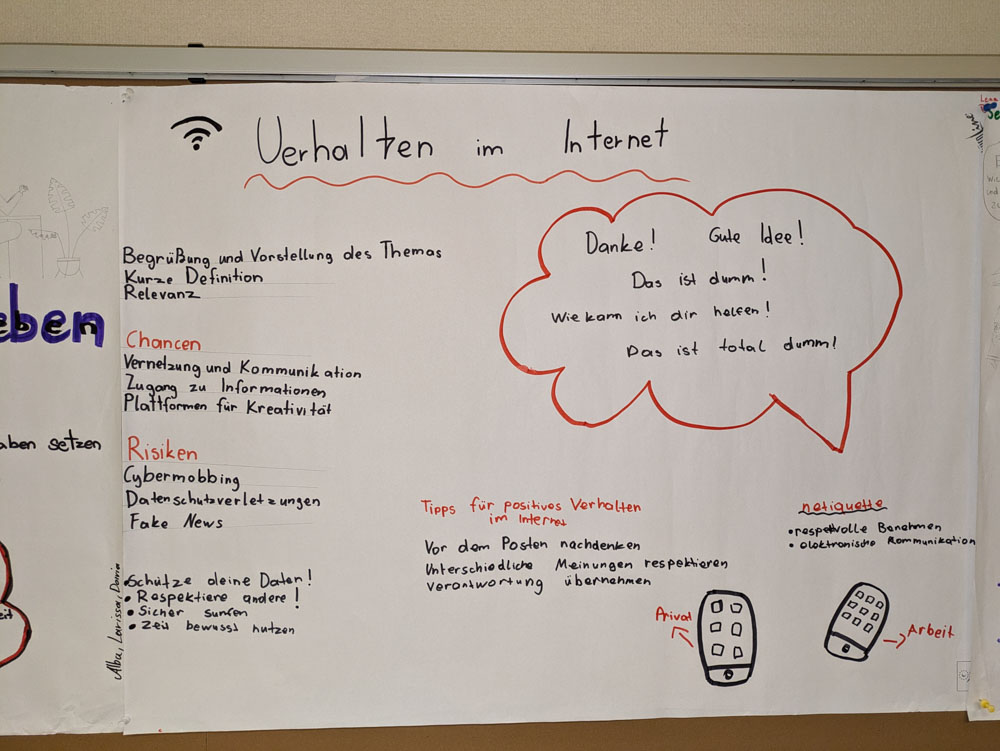 Verhalten im Internet
Begrüßung und Vorstellung des Themas
Kurze Definition
Relevanz
Chancen
Vernetzung und Kommunikation
Zugang zu Informationen
Plattformen für Kreativität
Risiken
Cybermobbing
Datenschutzverletzungen
Fake News
•Schütze deine Daten!
• Respektiere andere!
• Sicher surfen
• Zeit bewusst nutzen
Danke! Gute Idee!
Das ist dumm!
Wie kann ich dir helfen!
Das ist total dumm!
Tipps für positives Verhalten
im Internet
Vor dem Posten nachdenken
Unterschiedliche Meinungen respektieren
Verantwortung übernehmen
netiquette
•respektvolle Benehmen
• elektronische Kommunikation
Privat
Arbeit
Alba, Larissa,
eben
aben setzen